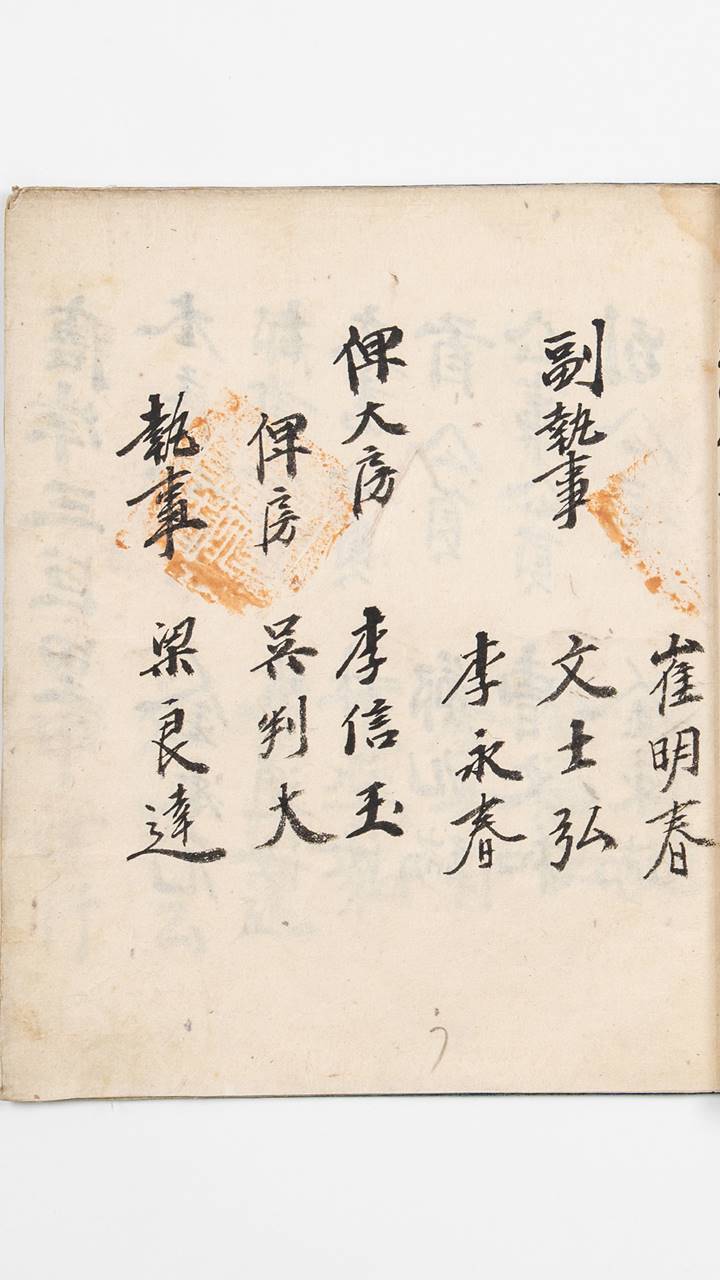 崔明春
副執事 文士弘
李永春
俾大房 李信玉
俾房 吳判大
執事 梁良達